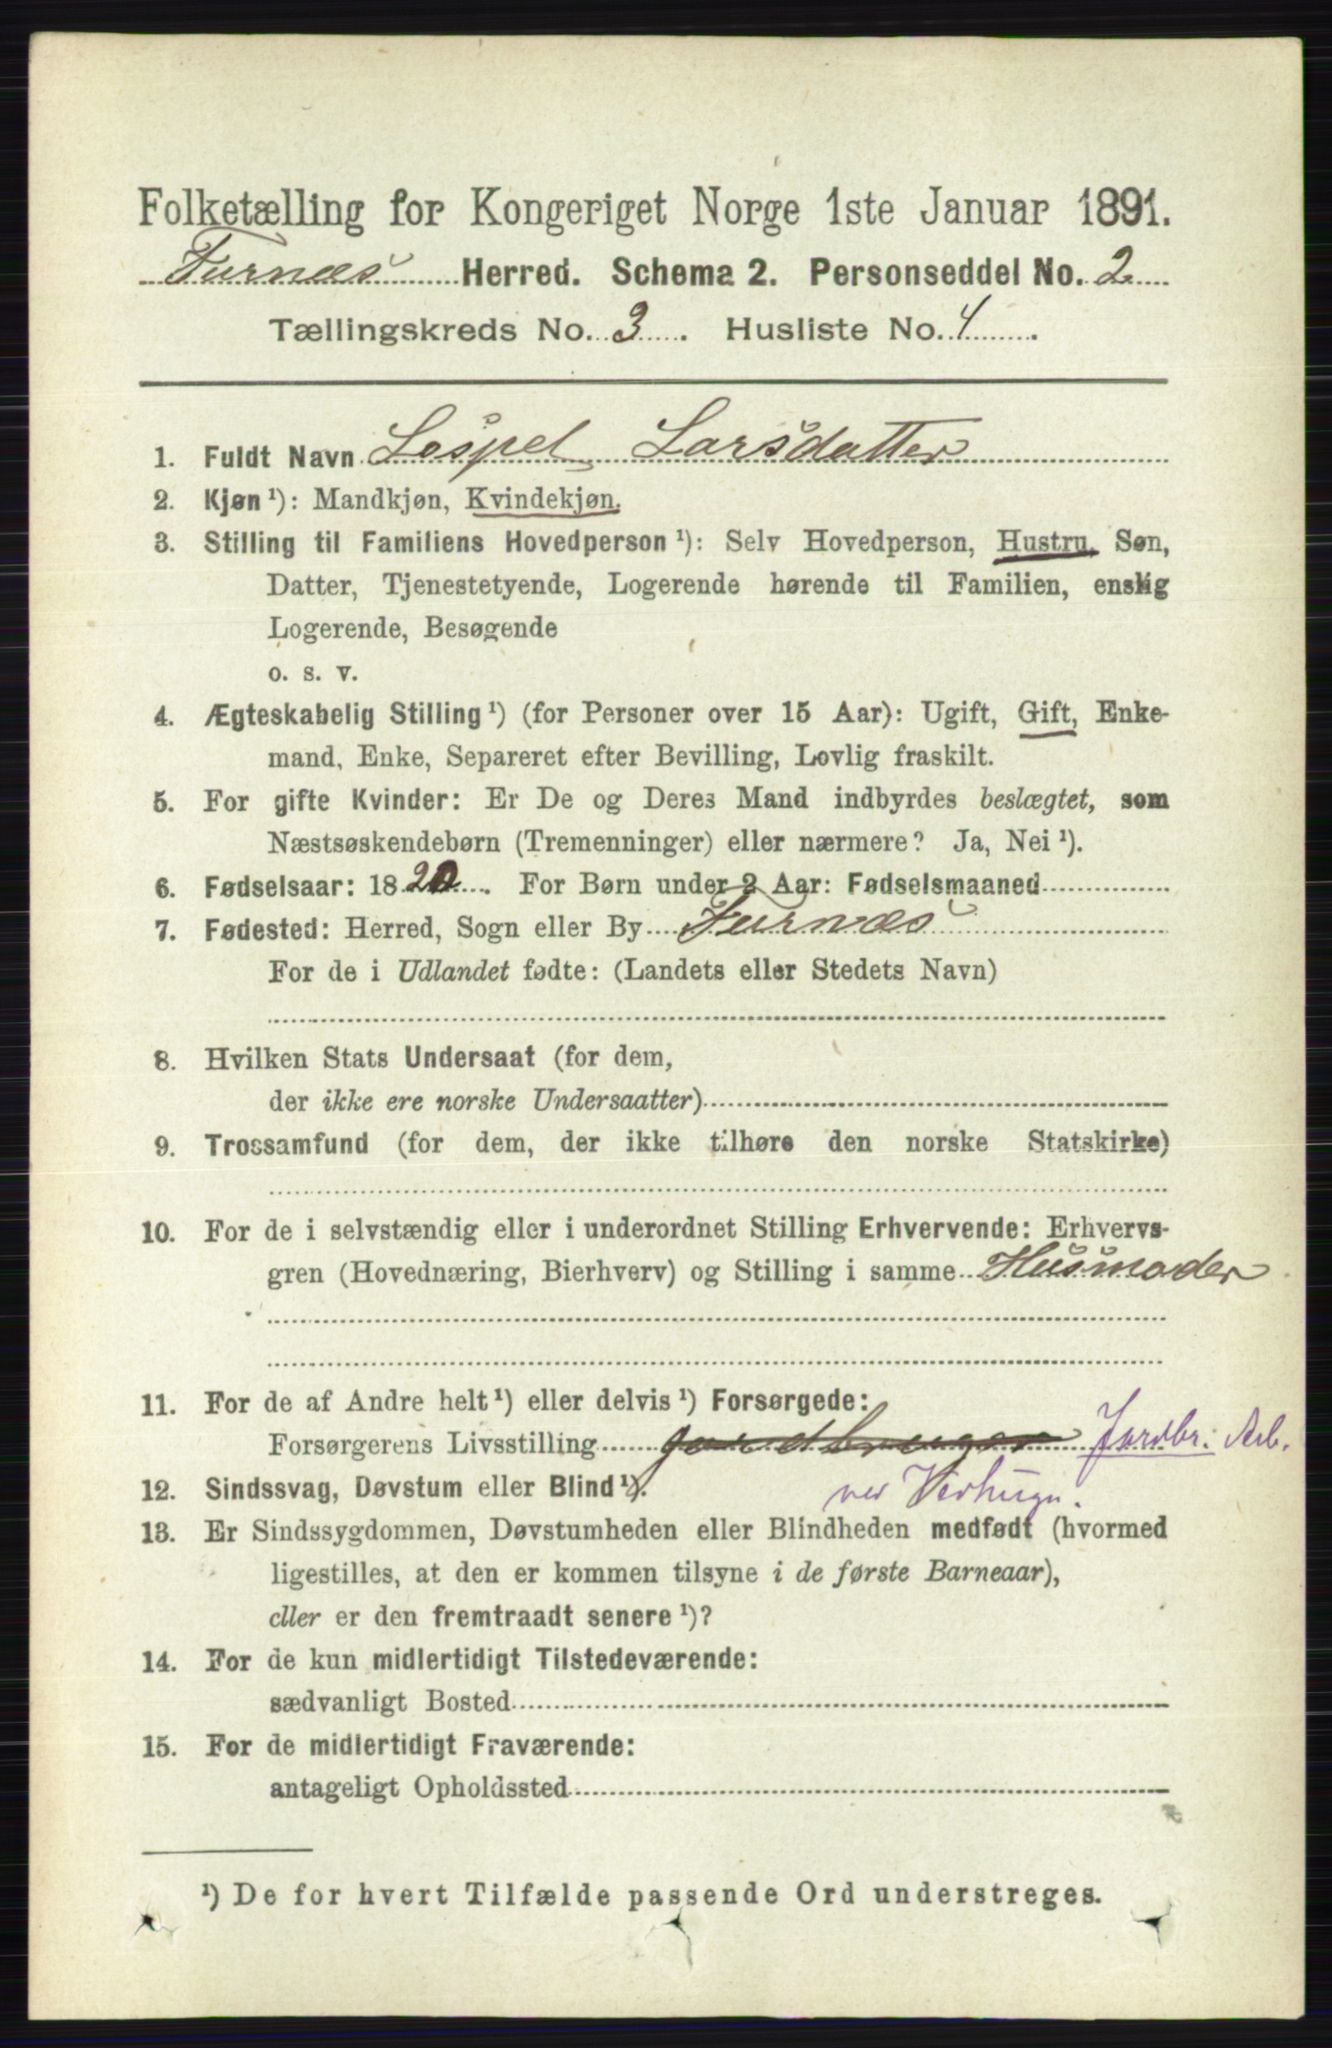 Folketælling for Kongeriget Norge 1ste Januar 1891.
Furnæs Herred. Schema 2. Personseddel No. 2
Tællingskreds No. 3. Husliste No. 4.
1. Fuldt Navn Lespel Larsdatter
2. Kjøn ¹): Mandkjøn, Kvindekjøn.
3. Stilling til Familiens Hovedperson ¹): Selv Hovedperson, Hustru, Søn,
Datter, Tjenestetyende, Logerende hørende til Familien, enslig
Logerende, Besøgende
o. s. v.
4. Ægteskabelig Stilling ¹) (for Personer over 15 Aar): Ugift, Gift, Enke-
mand, Enke, Separeret efter Bevilling, Lovlig fraskilt.
5. For gifte Kvinder: Er De og Deres Mand indbyrdes beslægtet, som
Næstsøskendebørn (Tremenninger) eller nærmere? Ja, Nei ¹).
6. Fødselsaar: 1820. For Børn under 2 Aar: Fødselsmaaned
7. Fødested: Herred, Sogn eller By Furnæs
For de i Udlandet fødte: (Landets eller Stedets Navn)
8. Hvilken Stats Undersaat (for dem,
der ikke ere norske Undersaatter)
9. Trossamfund (for dem, der ikke tilhøre den norske Statskirke)
10. For de i selvstændig eller i underordnet Stilling Erhvervende: Erhvervs-
gren (Hovednæring, Bierhverv) og Stilling i samme Husmoder
11. For de af Andre helt ¹) eller delvis ¹) Forsørgede:
Forsørgerens Livsstilling Jordbr. Arb.
12. Sindssvag, Døvstum eller Blind ¹). ved Vedhugn.
13. Er Sindssygdommen, Døvstumheden eller Blindheden medfødt (hvormed
ligestilles, at den er kommen tilsyne i de første Barneaar),
eller er den fremtraadt senere ¹)?
14. For de kun midlertidigt Tilstedeværende:
sædvanligt Bosted
15. For de midlertidigt Fraværende:
antageligt Opholdssted
¹) De for hvert Tilfælde passende Ord understreges.